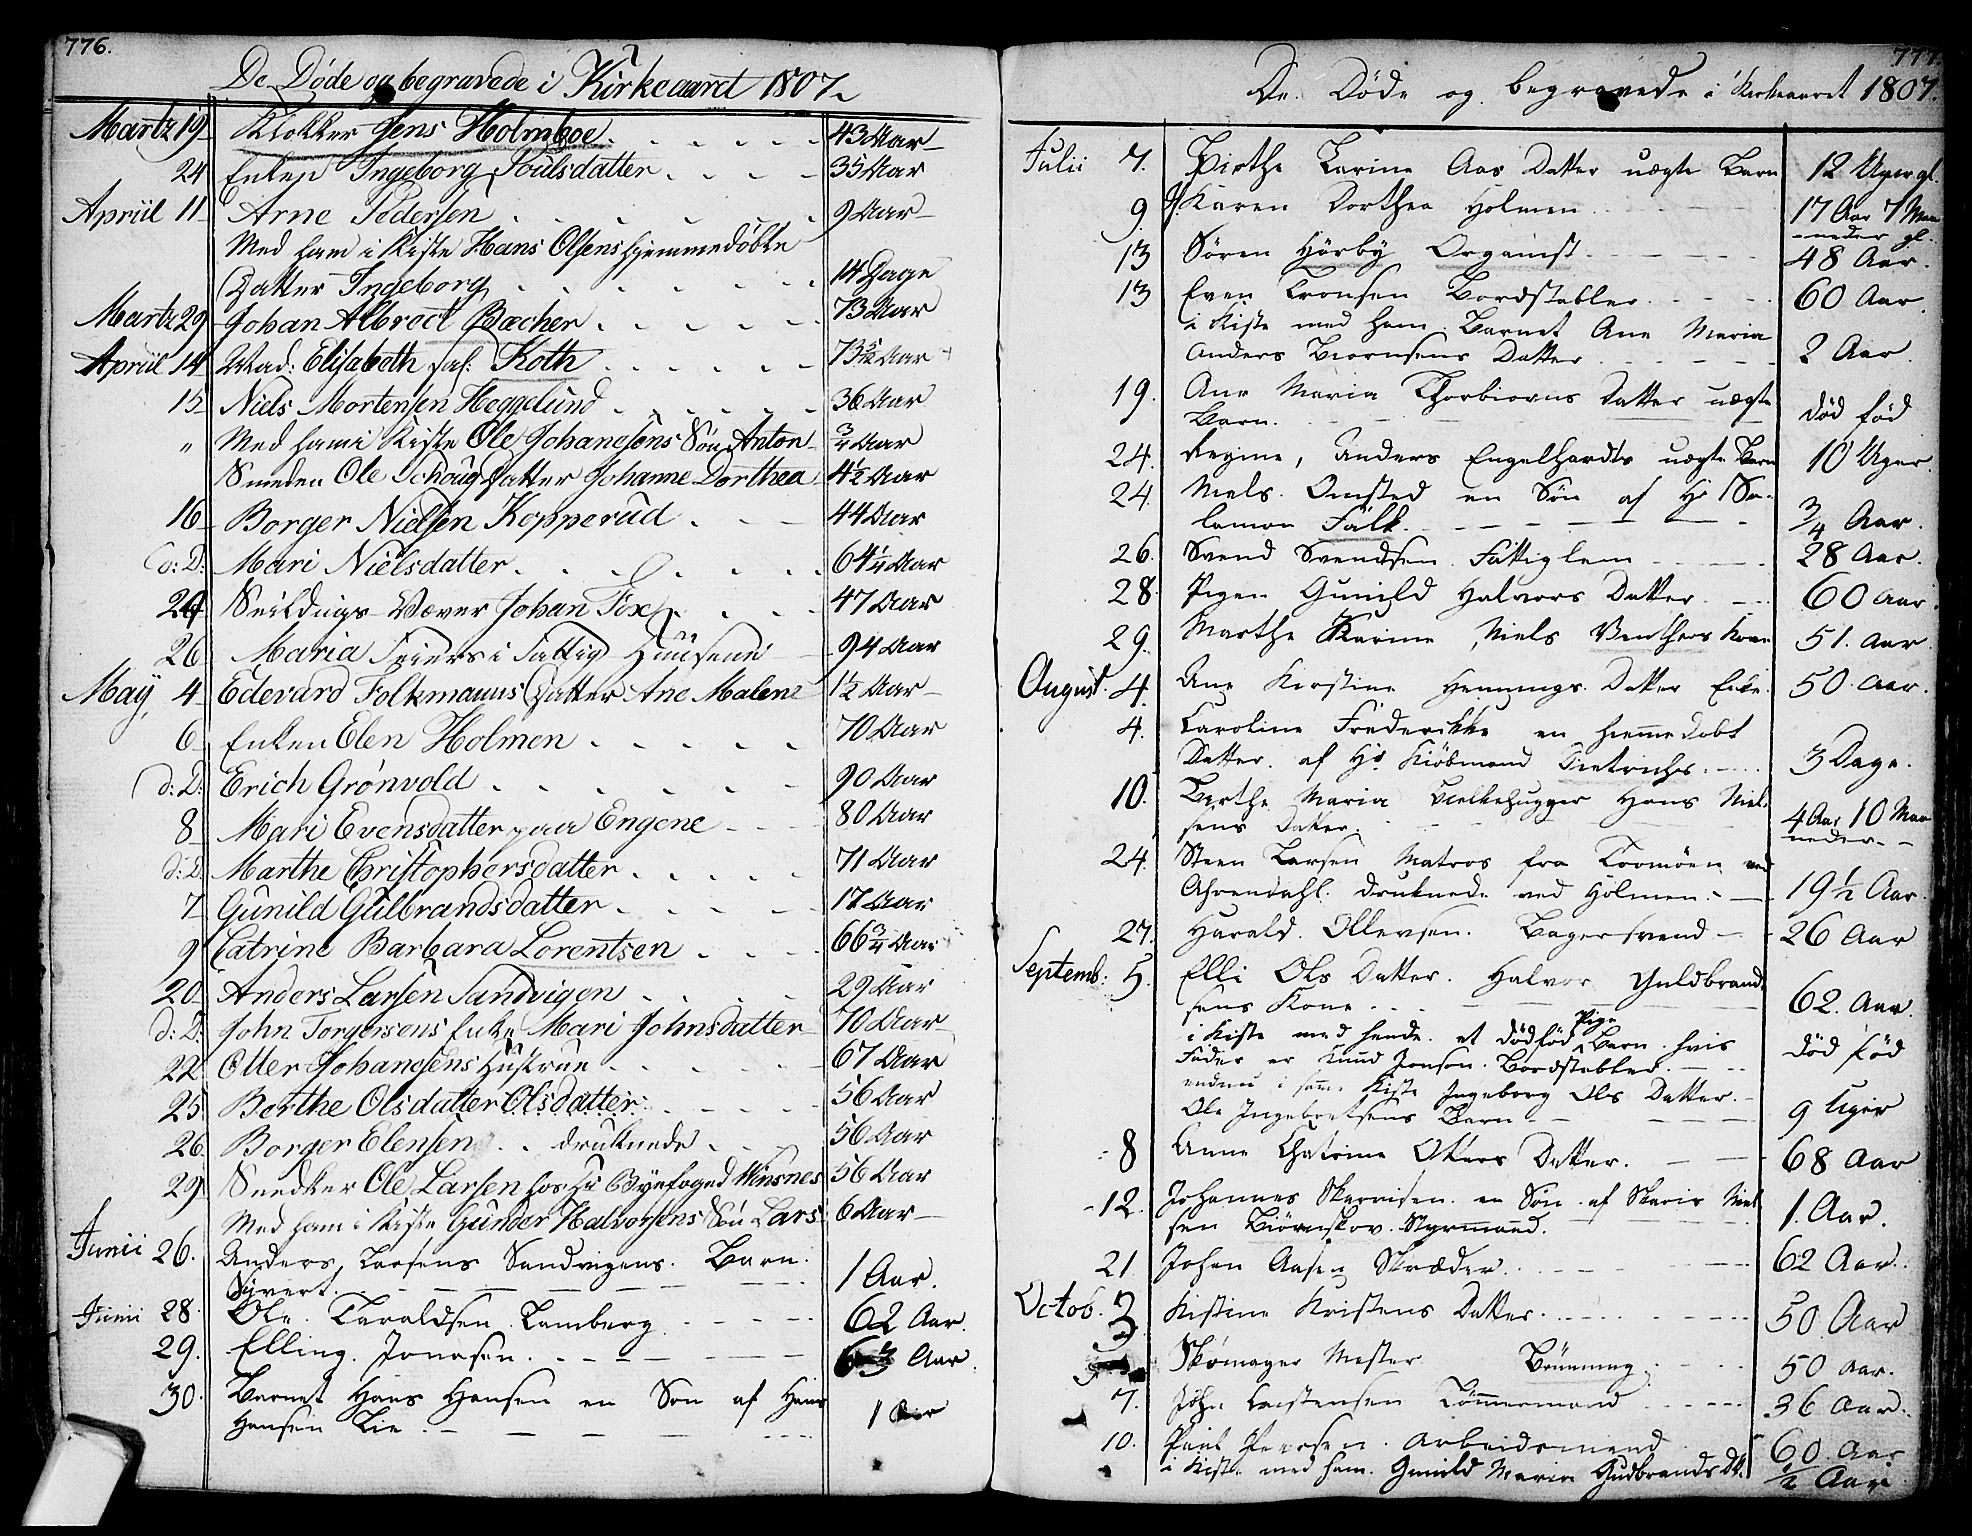 776.
De Døde og begravede i Kirkeaaret 1807
Martz 19 Klokker Jens Holmboe 43 Aar
24 Enken Ingeborg Poulsdatter 35 Aar
Apriil 11 Arne Pedersen 9 Aar
Med ham i Kiste Hans Olsens hjemmedøbte
Datter Ingeborg 14 Dage
Martz 29 Johan Albrect Bæcher 73 Aar
Apriil 14 Mad: Elisabeth sal: Koth 73 5/12 Aar
15 Niels Mortensen Heggelund 36 Aar
" Med ham i Kiste Ole Johanesens Søn Anton 3/4 Aar
Smeden Ole Schougs Datter Johanne Dorthea 4 1/2 Aar
16 Borger Nielsen Kopperud 44 Aar
d: D: Mari Nielsdatter 64 1/4 Aar
24 Seildugs Væver Johan Fox 47 Aar
26 Maria Friers i Fattig Huusene 94 Aar
May 4 Edevard Folkmanns Datter Ane Malene 1 1/2 Aar
6 Enken Elen Holmen 70 Aar
d: D: Erich Grønvold 90 Aar
8 Mari Evensdatter paa Engene 80 Aar
d: D: Marthe Christophersdatter 71 Aar
7 Gunild Gulbrandsdatter 17 Aar
9 Catrine Barbara Lorentsen 66 3/4 Aar
20 Anders Larsen Sandvigen 29 Aar
d: D: John Torgersens Enke Mari Johnsdatter 70 Aar
22 Otter Johanesens Hustrue 67 Aar
25 Berthe Olsdatter Olsdatter 56 Aar
26 Borger Elensen druknede 56 Aar
29 Snedker Ole Larsen hos Hr Byefoged Winsnes 56 Aar
Med ham i Kiste Gunder Halvorsens Søn Lars 6 Aar
Junii 26. Anders Larsens Sandvigens. Barn.
Syvert. 1 Aar.
Junii 28. Ole Taraldsen Lamberg 62 Aar.
29. Elling. Jonasen. 63 Aar.
30. Barnet Hans Hansen en Søn af Hans
Hansen Lie 1 Aar
777.
De Døde og begravede i Kirkeaaret 1807.
Julii 7. Birthe Karine Aas Datter uægte Barn 12 Uger gl.
9. J. Karen Dorthea Holmen 17 Aar 7 Maa
neder gl.
13 Søren Hørby Organist 48 Aar.
13 Even Tronsen Bordstabler 60 Aar.
i Kiste med ham Barnet Ane Maria
Anders Biørnsens Datter 2 Aar.
19. Ane Maria Thorbiørns Datter uægte
Barn. død fød
24. Regine, Anders Engelhardts uægte Barn 10 Uger.
24. Niels. Omsted en Søn af Hr Sa-
lamon Falk. 3/4 Aar.
26. Svend Svendsen. Fattiglem 28 Aar.
28. Pigen Gunild Halvors Datter. 60 Aar.
29. Marthe Karine, Niels Benthers Kone 51. Aar
August. 4. Ane Kirstine Hemmings. Datter Enke. 50. Aar.
4. Caroline Frederikke en hiemme døbt
Datter. af Hr Kiøbmand Dietrichs. 3 Dage.
10. Berthe Maria Bielkehugger Hans Niel-
sens Datter. 4 Aar 10 Maa
neder.
24. Steen Larsen Matros fra Tromøen ved
Ahrendahl. druknede ved Holmen. 19 1/2 Aar.
27. Harald. Ollevsen. Bagersvend 26 Aar
Septemb: 5. Elli Ols Datter. Halvor Guldbrand-
sens Kone 62. Aar.
i Kiste med hende. et dødfød Pige Barn. hvis
Fader er Knud Jonson. Bordstabler. død fød
endnu i samme Kiste Ingeborg Ols Datter.
Ole Ingebretsens Barn 9 Uger
8 Anne Chatrine Otters Datter. 68 Aar
12. Johannes Skarvisen. en Søn af Niel-
sen Biørnskov. Styrmand. 1. Aar.
21 Johan Aasen Skræder 62 Aar.
Octob. 3 Kistine Kristens Datter. 50. Aar
Skomager Mester Brünning 50 Aar.
7. John Tømmermand 36 Aar.
10. Paul Pedersen. Arbeidsmand 60. Aar
i Kiste med ham. Gunild Maria Gudbrands Dt. 1/2 Aar